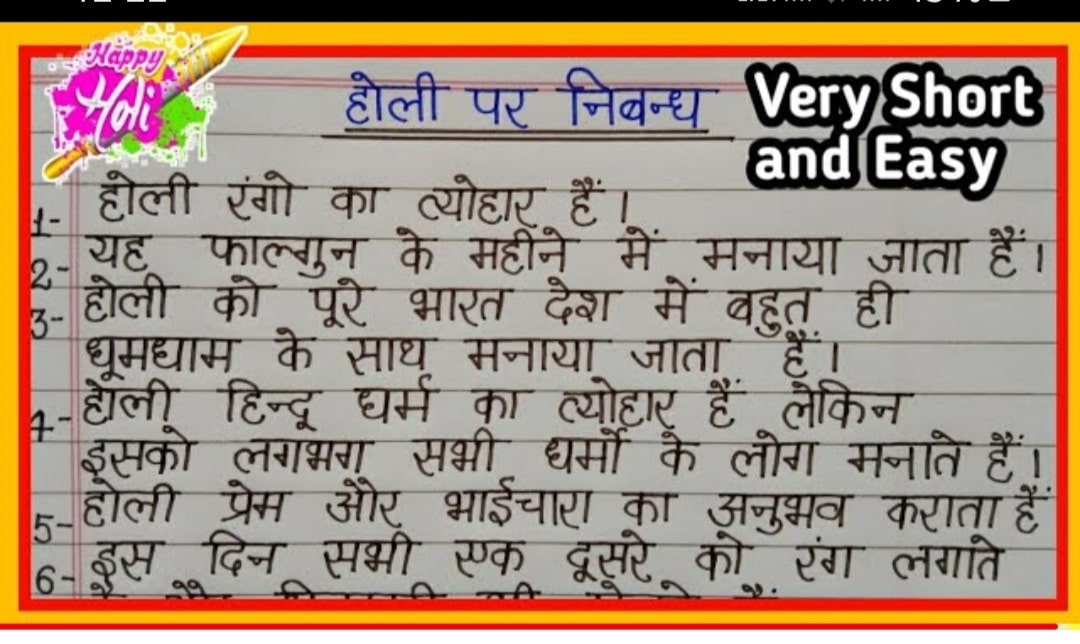 Happy
Holi
होली पर निबन्ध
Very Short
and Easy
1- होली रंगो का त्योहार हैं।
2- यह फाल्गुन के महीने में मनाया जाता हैं।
3- होली को पूरे भारत देश में बहुत ही
धूमधाम के साथ मनाया जाता हैं।
4- होली हिन्दू धर्म का त्योहार हैं लेकिन
इसको लगभग सभी धर्मो के लोग मनाते हैं।
5- होली प्रेम और भाईचारा का अनुभव कराता हैं
6- इस दिन सभी एक दूसरे को रंग लगाते